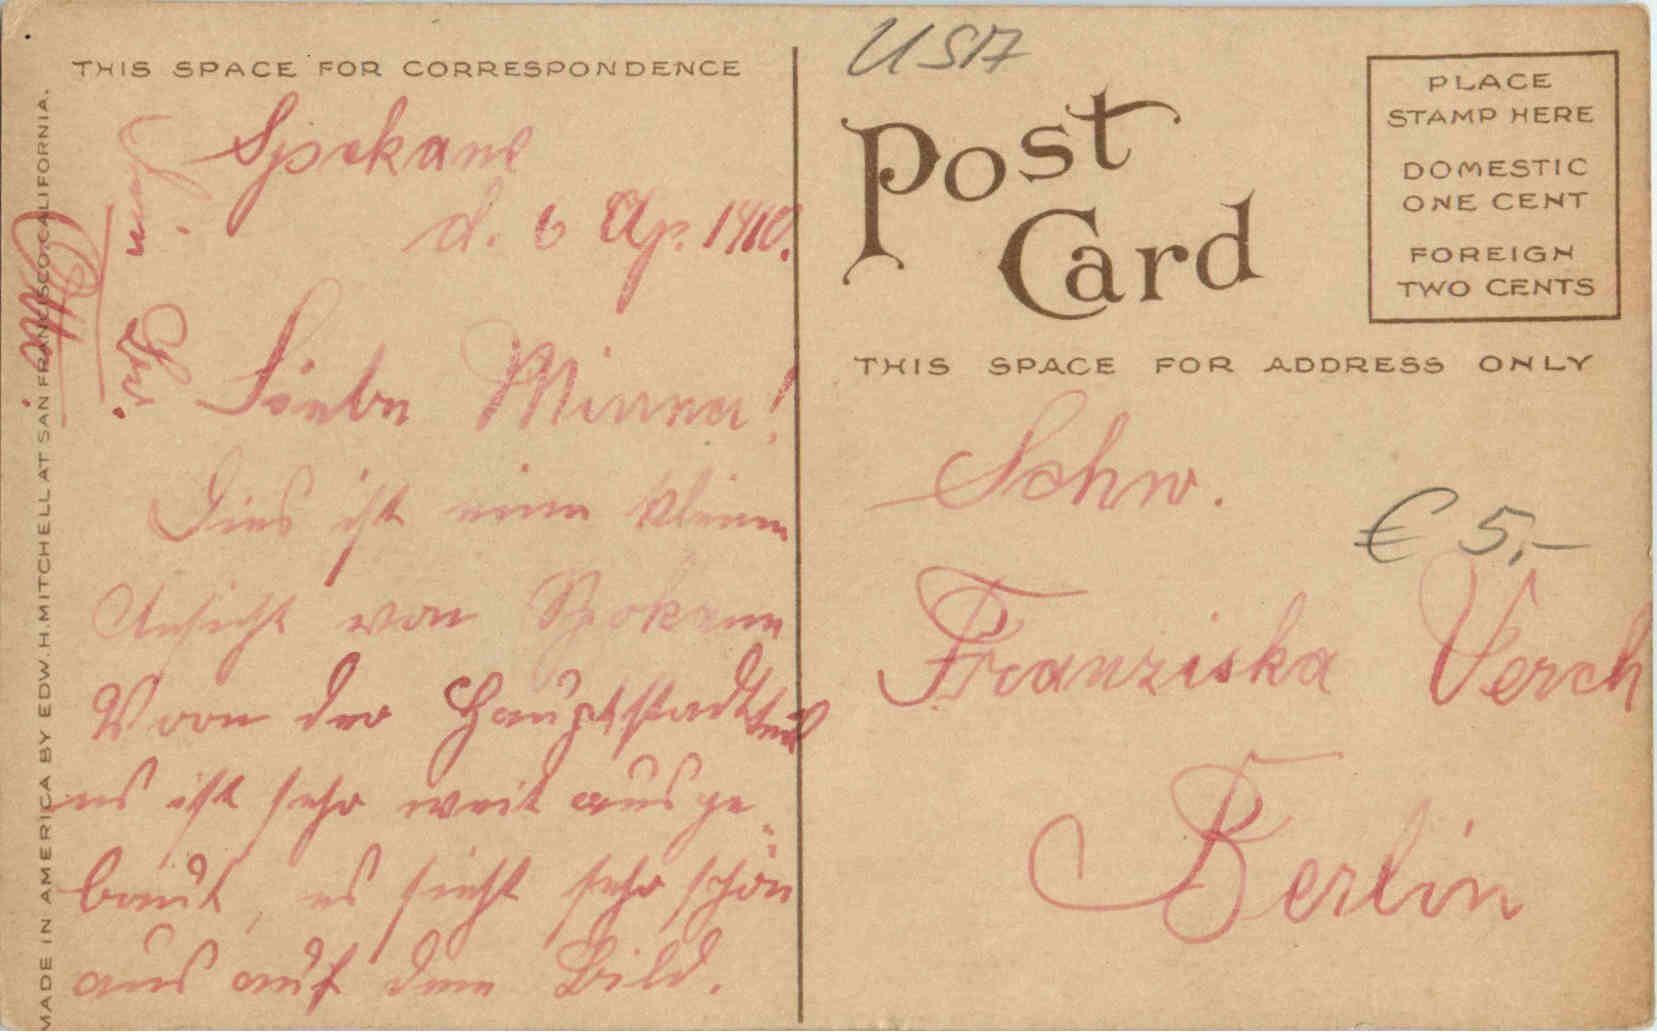 THIS SPACE FOR CORRESPONDENCE
Spokane
d. 6 Ap. 1910.
Liebe Minna!
Dies ist eine kleine
Ansicht von Spokane
Voon der Hauptstadtteil
es ist sehr weit ausge
baut, es sieht sehr schön
aus auf dem Bild.
MADE IN AMERICA BY EDW. H. MITCHELL AT SAN FRANCISCO, CALIFORNIA.
USA
Post
Card
PLACE
STAMP HERE
DOMESTIC
ONE CENT
FOREIGN
TWO CENTS
THIS SPACE FOR ADDRESS ONLY
Schw.
€ 5,-
Franziska Verch
Berlin